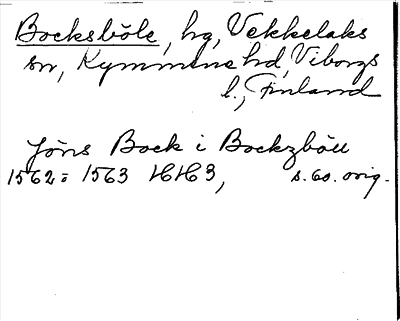 Bocksböle, hg, Vekkelaks
sn, Kymmene hd, Viborgs
l., Finland
Jöns Bock i Bockzböll
1562-1563 HH3, s. 60. orig.